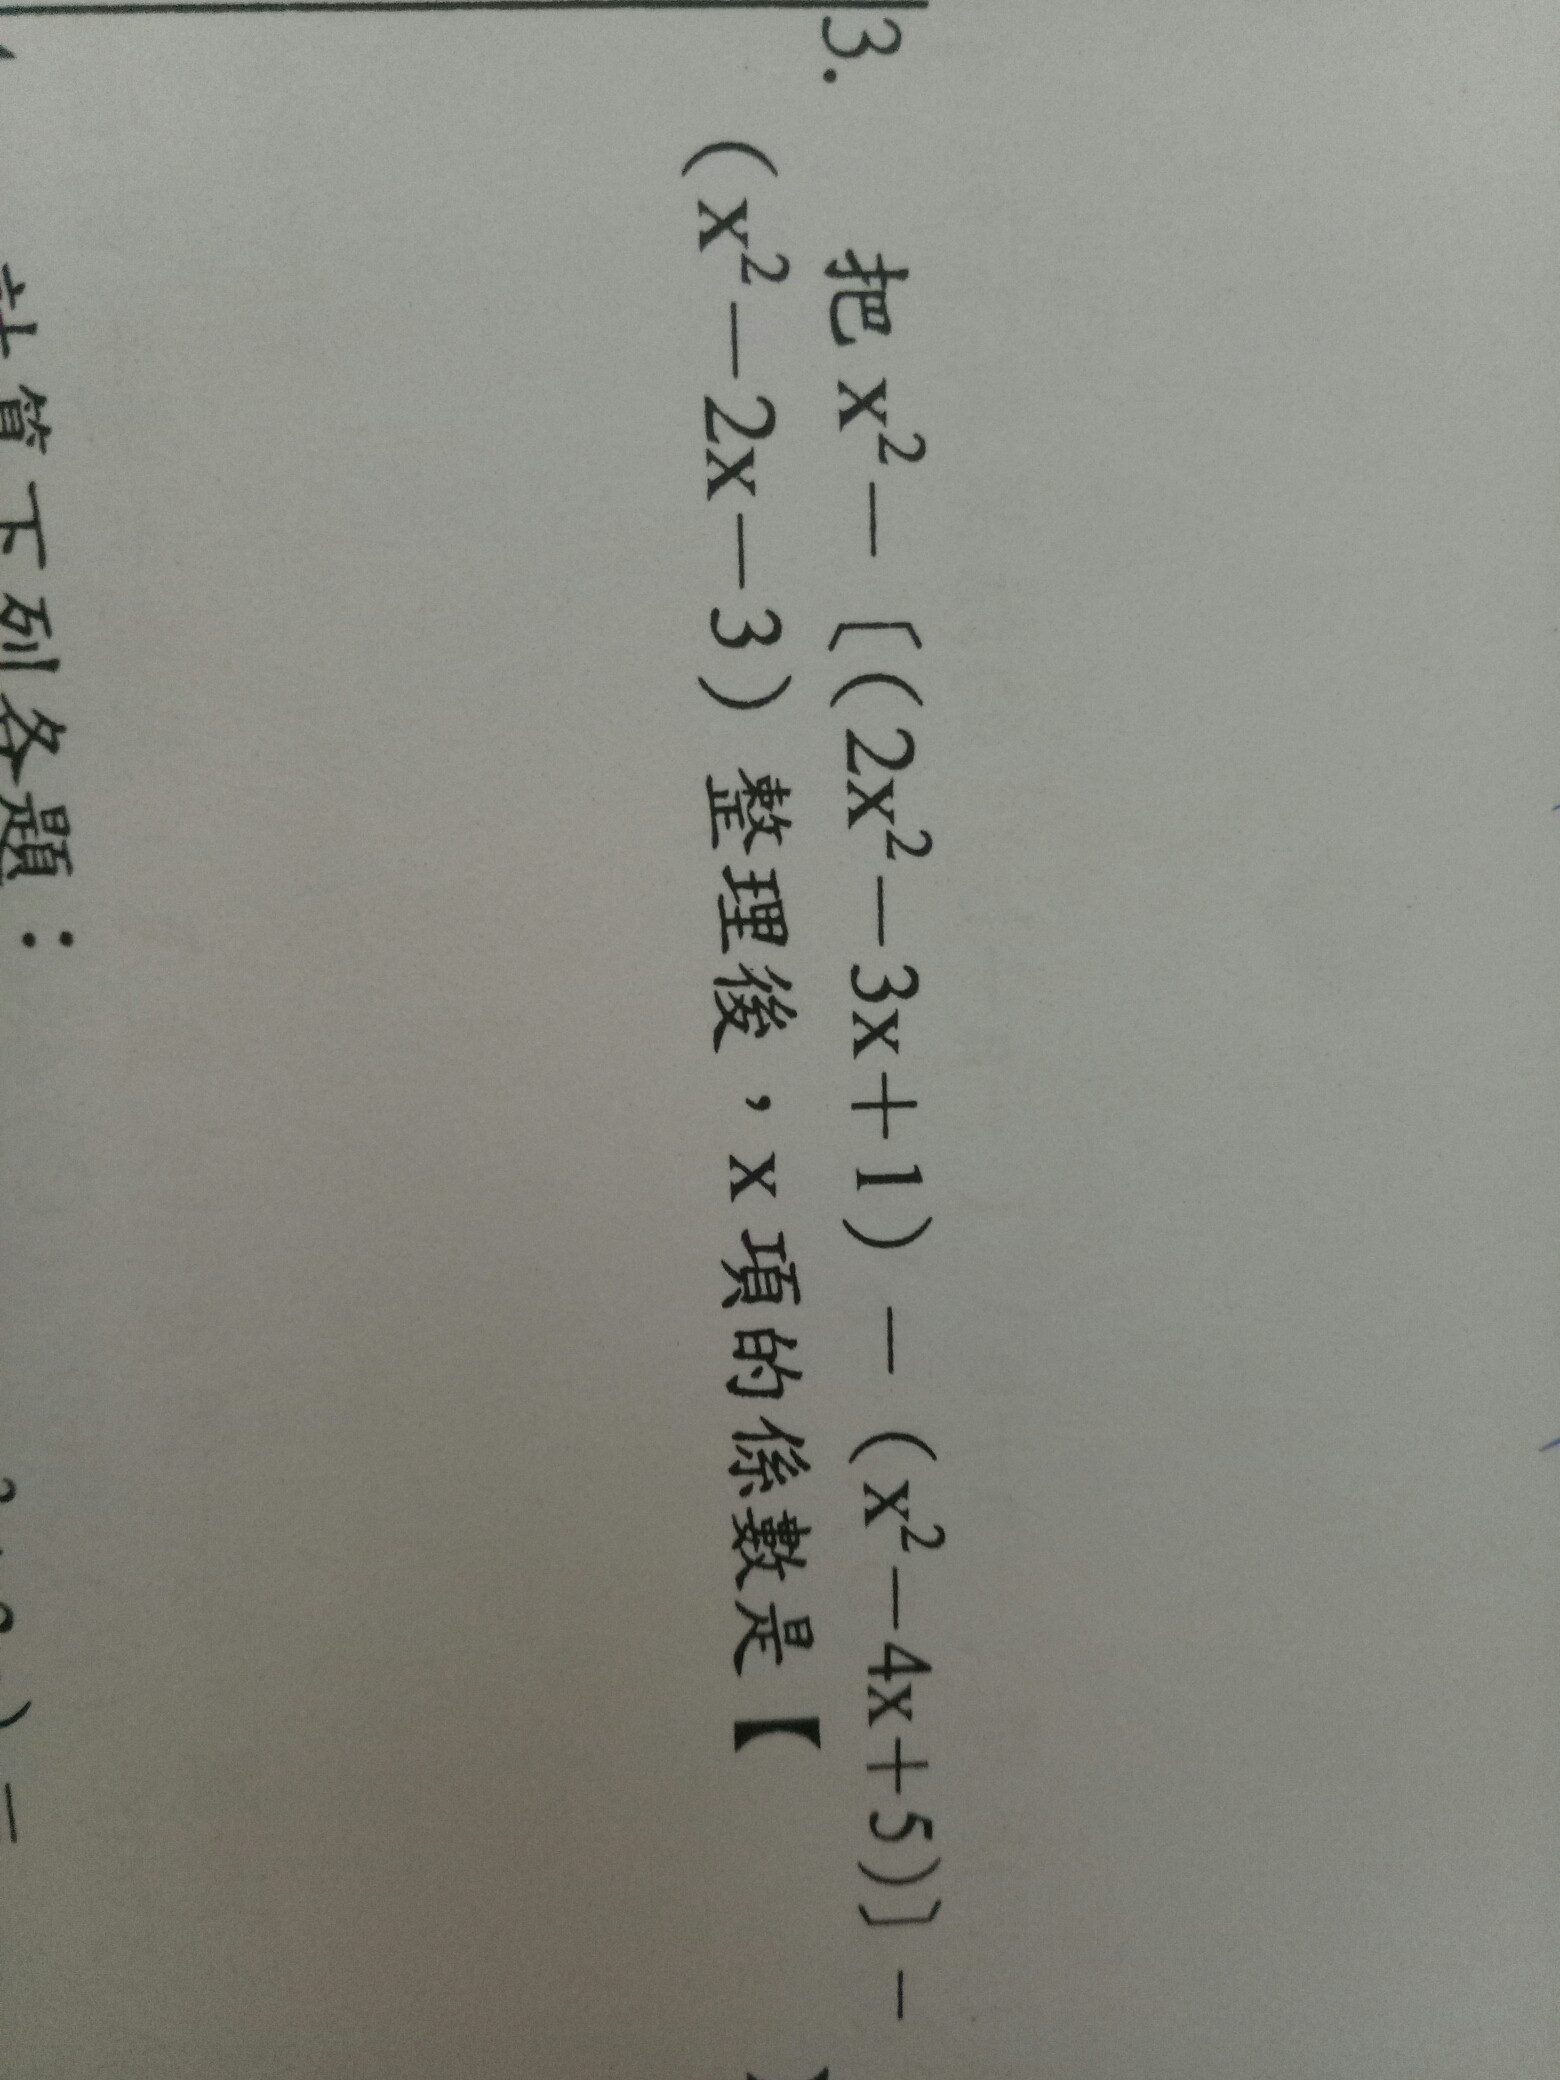 3. 把 x²－〔(2x²－3x＋1)－(x²－4x＋5)〕－
(x²－2x－3) 整理後，x 項的係數是【 】
計算下列各題：